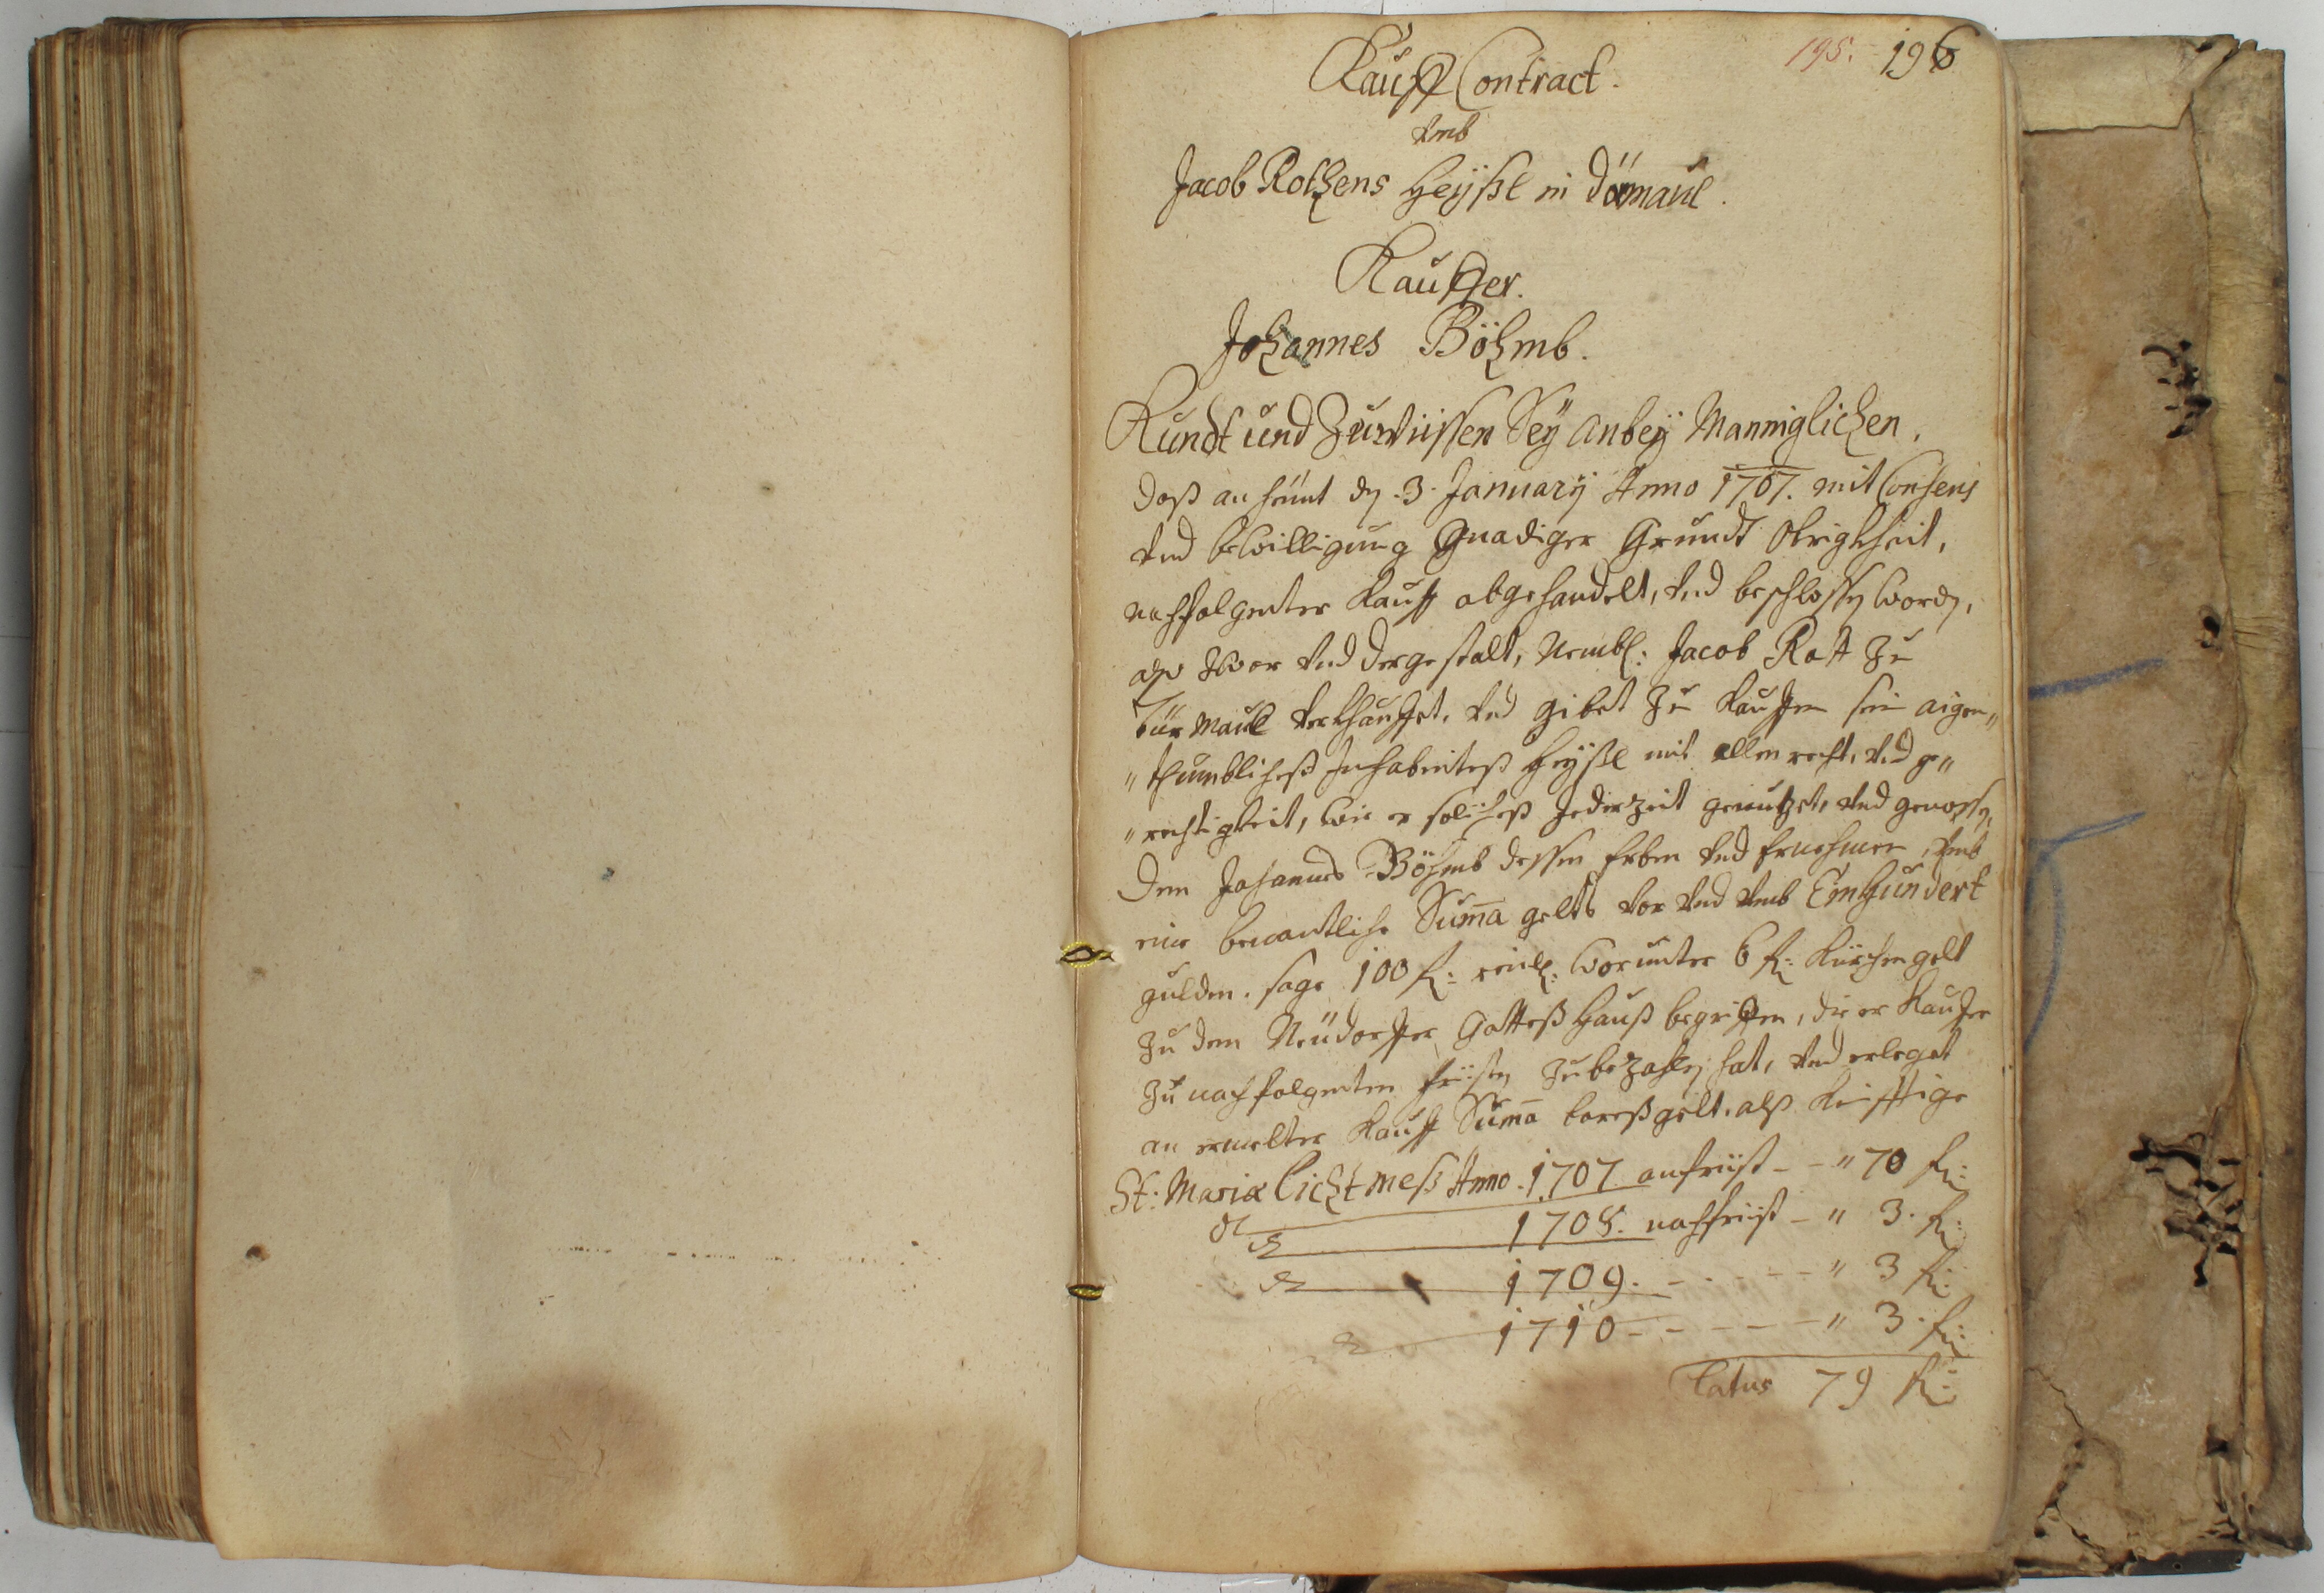 195. 196
Kauff Contract.
Vmb
Jacob Rothens Heÿßl in Dörmaul.
Kauffer.
Johannes Böhmb.
Kundt und Zuwiissen Seÿ Anbeÿ Manniglichen,
daß an heünt dn. 3. Januarÿ Anno 1707. mit Consens
Vnd bewilligung Gnadiger Grundt Obrigkheit,
nachfolgenter Kauff abgehandelt, Vnd beschlossen worden,
Zwar Vnd dergestalt, Nembl: Jacob Rott Zu
Dürmaul Verkhauffet, Vnd gibet Zu Kauffen sein aigen„
„thumbliches Inhabentes Heÿßl mit allen recht, Vnd ge„
„rechtigkeit, wie er soliches Jederzeit genutzet, Vnd genossen,
dem Johannes Böhmb dessen Erben Vnd Ernehmer, Vmb
eine benantliche Suma gelts vor Vnd Vmb Einhundert
gulden. sage 100 fl: reinl: worunter 6 fl: Kürchengelt
Zu dem Neüdorffer Gottes Hauß begriffen, die er Kauffer
Zu nachfolgenten friisten Zubezahlen hat, Vnd erleget
an ermelter Kauff Suma bares gelt. alß Künfftige
St: Mariæ Lichtmess Anno. 1707 anfriist - - „ 70 fl:
1708. nachfriist - „ 3. fl:
1709. - - - - - „ 3 fl:
1710 - - - - - „ 3. fl:
Latus 79 fl: